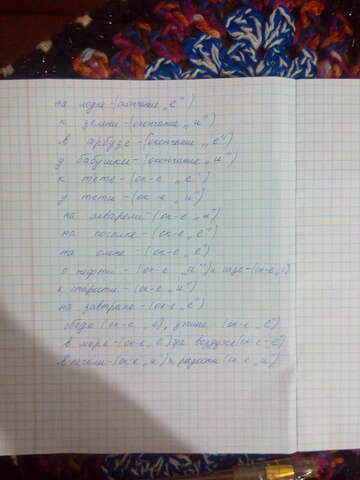 на лодке - (окончание „е")
к земли - (окончание „и")
в арбузе - (окончание „е")
у бабушки - (окончание „и")
к тете - (ок-е „е")
у тети - (ок-е „и")
на акварели - (ок-е „и")
на поселке - (ок-е „е")
на - (ок-е „е")
о нефти - (ок-е „и") и газе - (ок-е „е")
к старости - (ок-е „и")
на завтраке - (ок-е „е")
обеде (ок-е „е), ужине (ок-е „е")
в море - (ок-е „е) на воздухе (ок-е -„е")
в печали - (ок-е „и") и радости (ок-е „и")